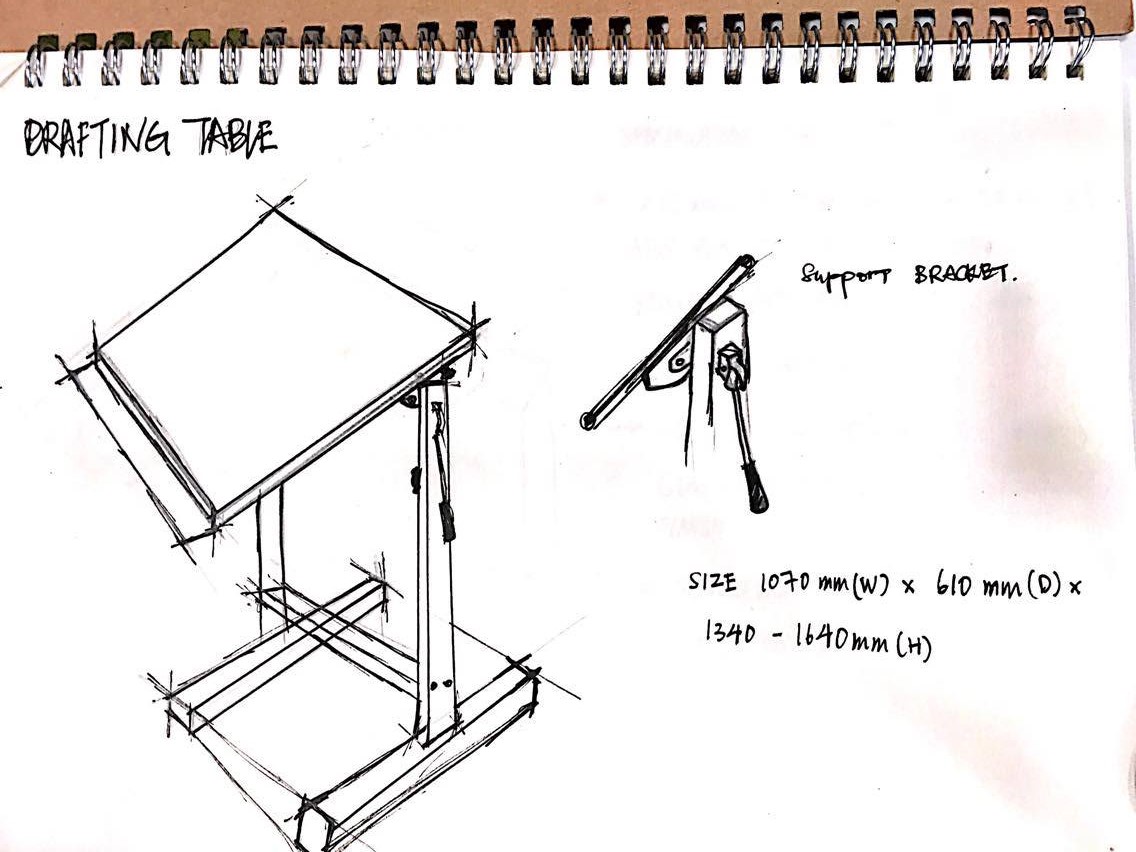 DRAFTING TABLE
Support BRACKET.
SIZE 1070 mm (W) x 610 mm (D) x
1340 - 1640 mm (H)